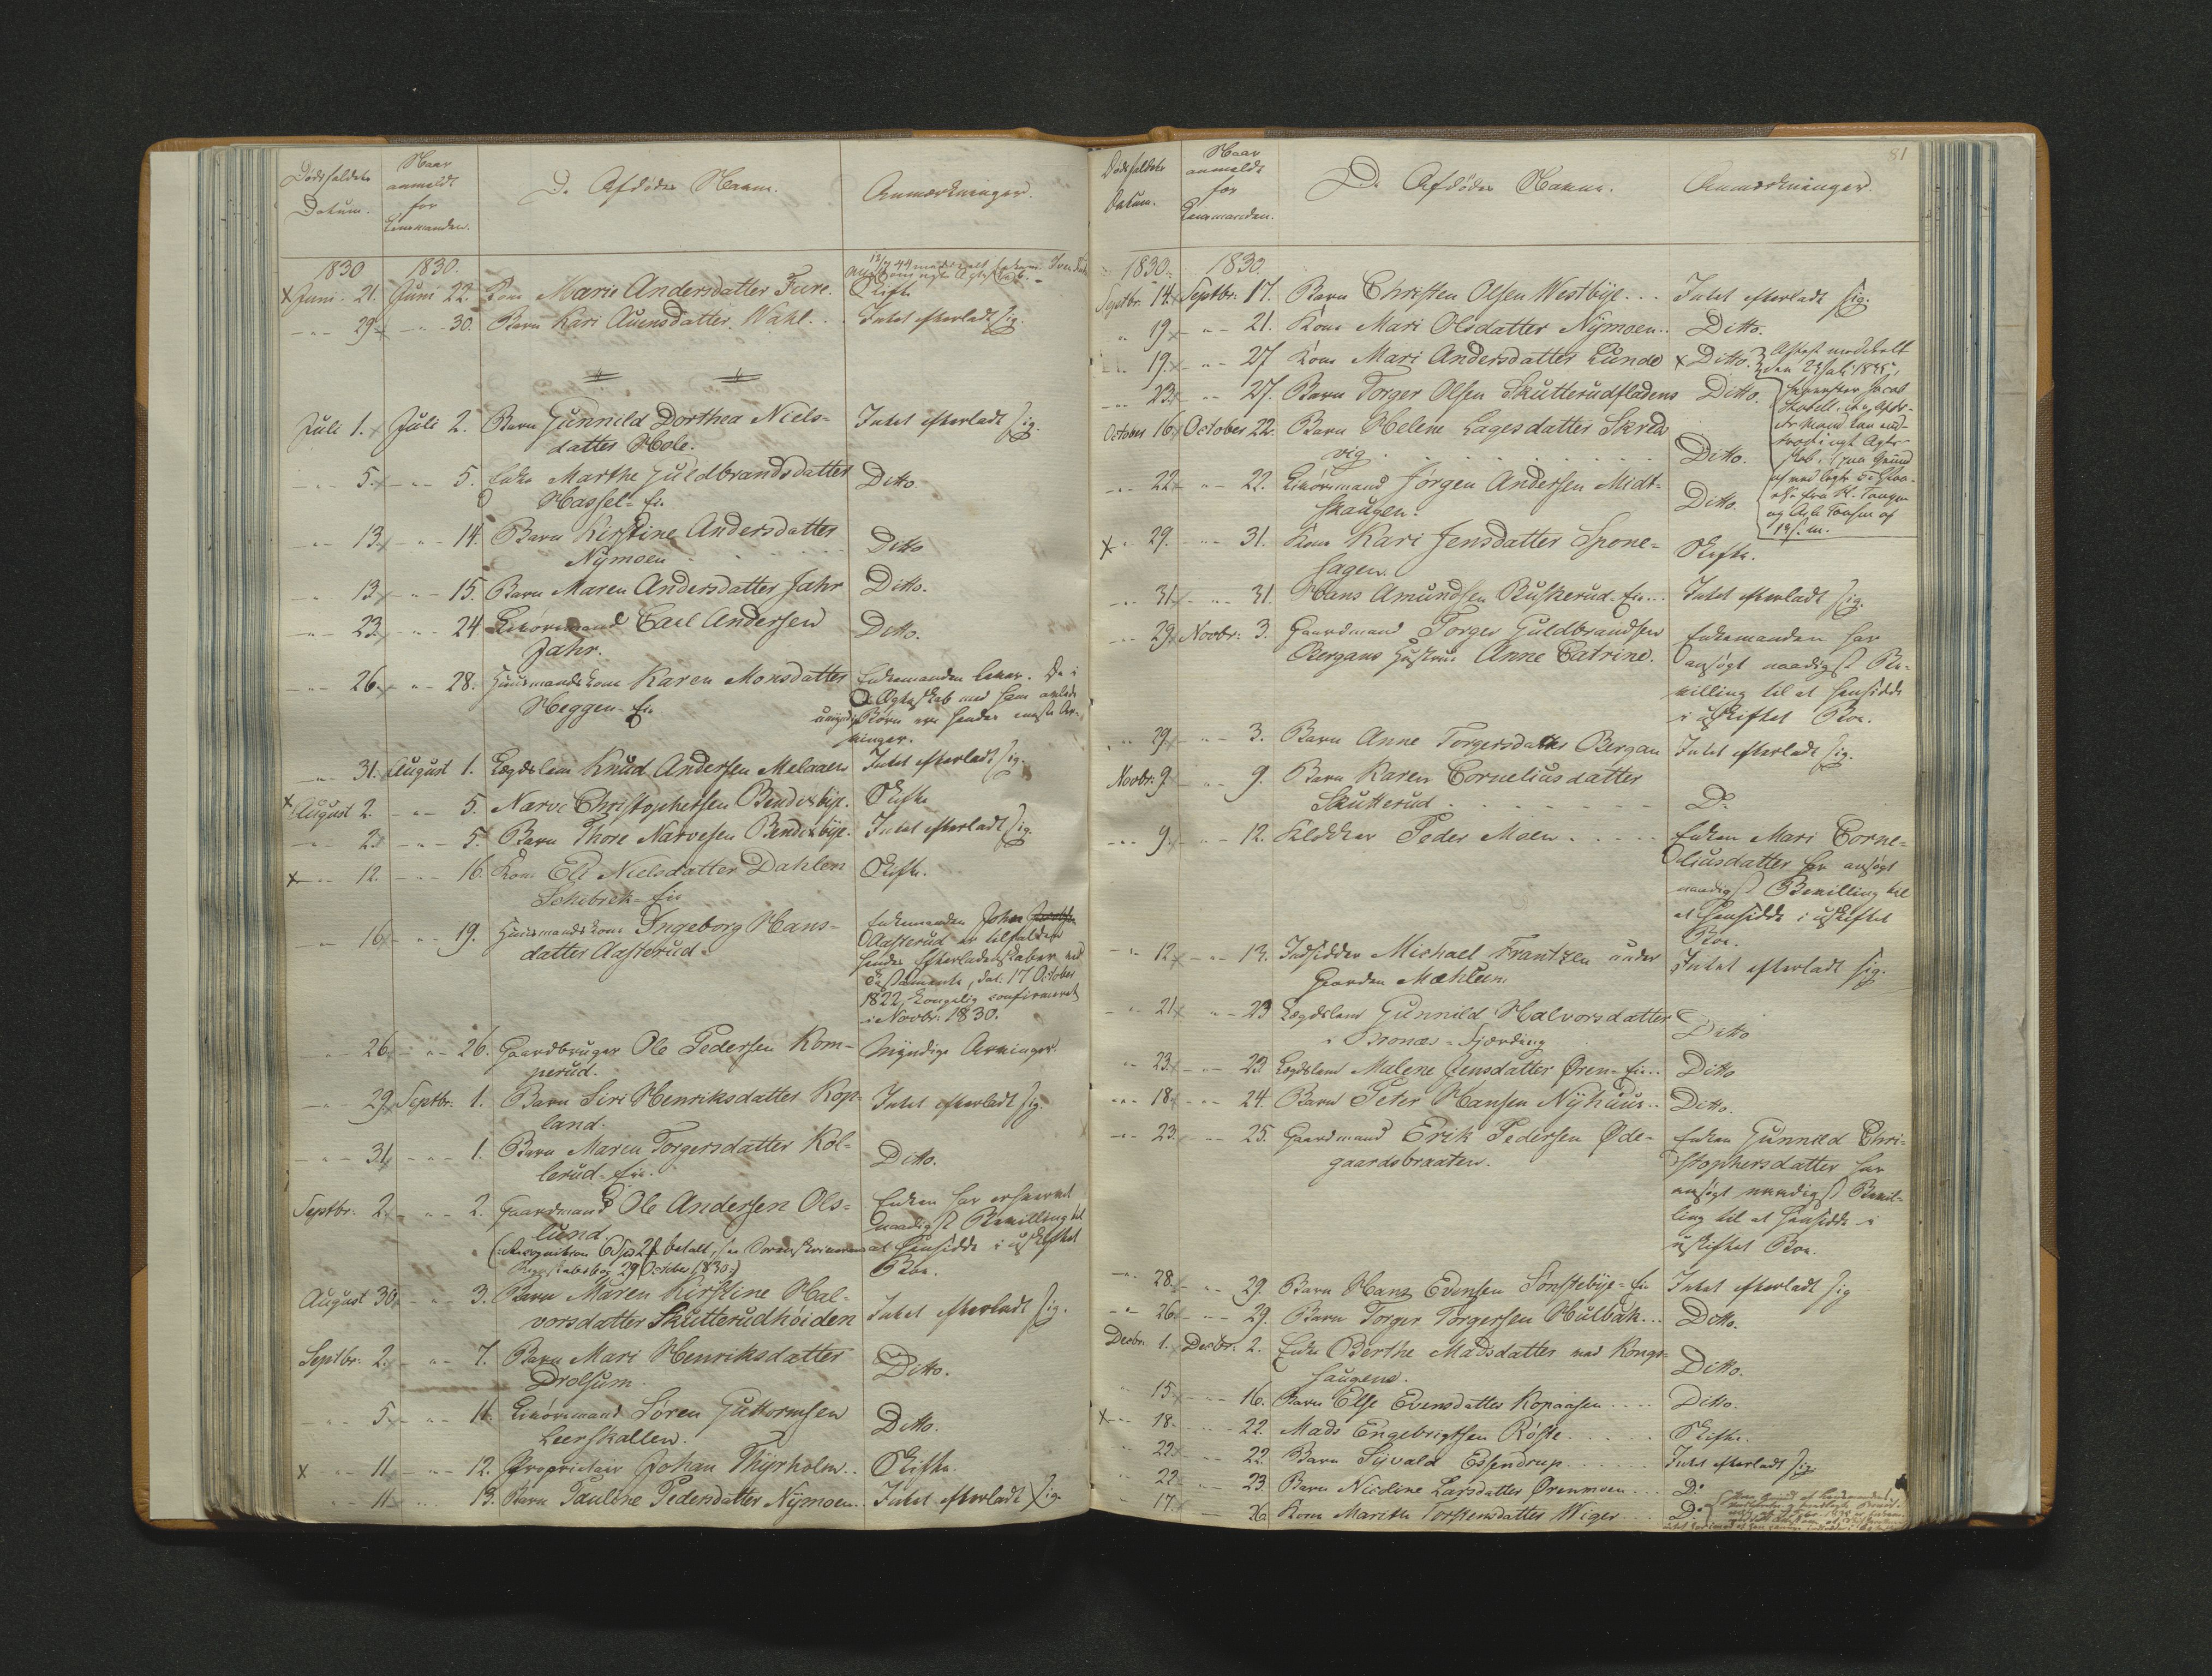 Dødsfaldets Datum.
Naar anmeldt for Lensmanden.
De Afdødes Navne.
Anmærkninger.
1830 1830.
Juni 21. Juni 22. Kone Marie Andersdatter Fure. Skifte
29. 30. Barn Kari Auensdatter Wahl. Intet efterladt sig.
Juli 1. Juli 2. Barn Gunnild Dorthea Niels- Intet efterladt sig.
datter Hole.
5. 5. Enke Marthe Guldbrandsdatter Ditto
Hassel-Eie
13. 14. Barn Kirstine Andersdatter
Nÿmoen Ditto
13. 15. Barn Maren Andersdatter Jahr Ditto.
23. 24 Carl Andersen Ditto.
Jahr.
26. 28. Huusmandskone Karen Monsdatter Enkemanden lever. De i
Heggen-Eie Ægteskab med ham avlede
umyndige Børn ere hendes Ar-
vinger.
31. August 1. Lægdslem Knud Andersen Melaaen Intet efterladt sig.
August 2. 5. Narve Christophersen Bendixbÿe. Skifte
2. 5. Barn Thore Narvesen Bendixbÿe. Intet efterladt sig.
12. 16. Kone Eli Nielsdatter Dahlen Skifte.
Schibrek-Eie
16. 19. Huusmandskone Ingeborg Hans- Enkemanden John
datter Aasterud. Aasterud er tilfalden
hendes Efterladenskaber ved
Testamente, dat. 17 October
1822, kongelig confirmeret
i Novbr. 1830.
26. 26. Gaardbruger Ole Pedersen Kom- Mÿndige Arvinger.
perud.
29. Septbr. 1. Barn Siri Henriksdatter Kop- Intet efterladt sig.
land.
31. 1. Barn Maren Torgersdatter Kol-
lerud-Eie. Ditto.
Septbr. 2. 2. Gaardmand Ole Andersen Ols- Enken har erhvervet
lund. naadigst Bevilling til
betalt, see Sorenskriverens at hensidde i uskiftet
Regnskabsbog 29 October 1830.) Boe.
August 30. 3. Barn Maren Kirstine Hal-
vorsdatter Skutterudhöiden Intet efterladt sig.
Septbr. 2. 7. Barn Mari Henriksdatter
Drolsum. Ditto.
5. 11. Søren Guttormsen
Leerskallen. Ditto.
11 12. Proprietair Johan Thÿrholm. Skifte.
11. 13. Barn Pauline Pedersdatter Nÿmoen. Intet efterladt sig.
81
Dødsfaldets Datum.
Naar anmeldt for Lensmanden.
De Afdødes Navne.
Anmærkninger.
1830. 1830.
Septbr. 14. Septbr. 17. Barn Christen Olsen Westbÿe Intet efterladt sig.
19 21. Kone Mari Olsdatter Nÿmoen Ditto.
19. 27. Kone Mari Andersdatter Lunde Ditto.
23. 27. Barn Torger Olsen Skutterudfladens Ditto.
October 16. October 22. Barn Helene Lagesdatter Skred
vig Ditto.
22. 22. Jørgen Andersen Midt-
skaugen. Ditto.
29. 31. Kone Kari Jensdatter Spone-
hagen. Skifte.
31. 31. Hans Amundsen Buskerud-Eie Intet efterladt sig.
29. Novbr. 3. Gaardmand Torger Guldbrandsen Enkemanden har
Bergans Hustrue Anne Catrine. ansøgt naadigst Be-
villing til at hensidde
i uskiftet Boe.
29. 3. Barn Anne Torgersdatter Bergan Intet efterladt sig.
Novbr. 9. 9. Barn Karen Corneliusdatter
Skutterud Do
9. 12. Klokker Peder Moen Enken Mari Corne-
liusdatter har ansøgt
naadigst Bevilling til
at hensidde i uskiftet
Boe.
12. 13. Indsidder Michael Frantzen under
Gaarden Mæhlum Intet efterladt sig.
21. 23 Lægdslem Gunnild Halvorsdatter
i Snonæs-Fjærding Ditto
23. 23 Lægdslem Malene Jensdatter Øren-Eie Ditto
18. 24. Barn Peter Hansen Nÿhuus Ditto.
23. 25. Gaardmand Erik Pedersen Øde- Enken Gunnild Chri-
gaardsbraaten. stophersdatter har
ansøgt naadigst Bevil-
ling til at hensidde i
uskiftet Boe.
28. 29. Barn Hans Evensen Sønstebÿe-Eie Intet efterladt sig
26. 29. Barn Torger Torgersen Hulbak Ditto.
Decbr. 1. Decbr. 2. Enke Berthe Madsdatter ved Kongs-
haugene. Ditto.
15. 16. Barn Else Evensdatter Kopaasen Ditto.
18. 22. Mads Engebrigtsen Røste Skifte.
22. 22 Barn Sivald Essendrup Intet efterladt sig
22. 23. Barn Nicoline Larsdatter Ørenmoen Do
17. 26 Kone Marithe Torstensdatter Wiger Do